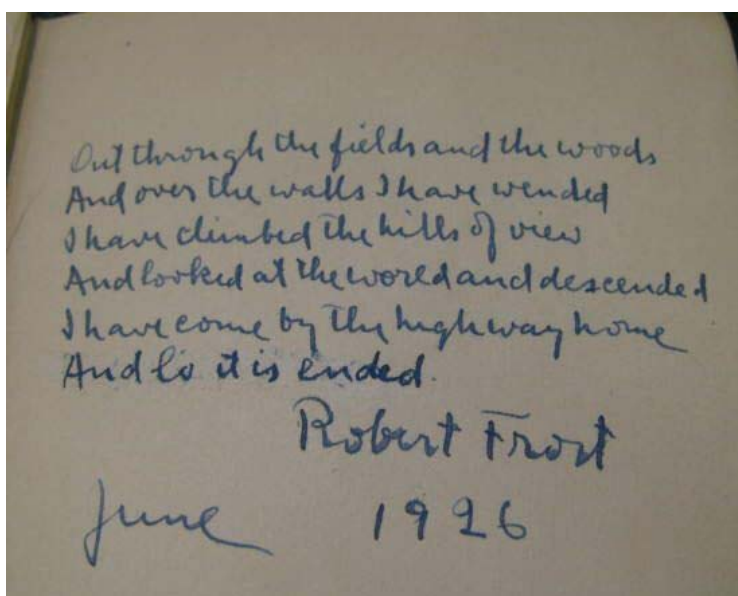 Out through the fields and the woods
And over the walls I have wended
I have climbed the hills of view
And looked at the world and descended
I have come by the highway home
And lo it is ended.
Robert Frost
June 1926